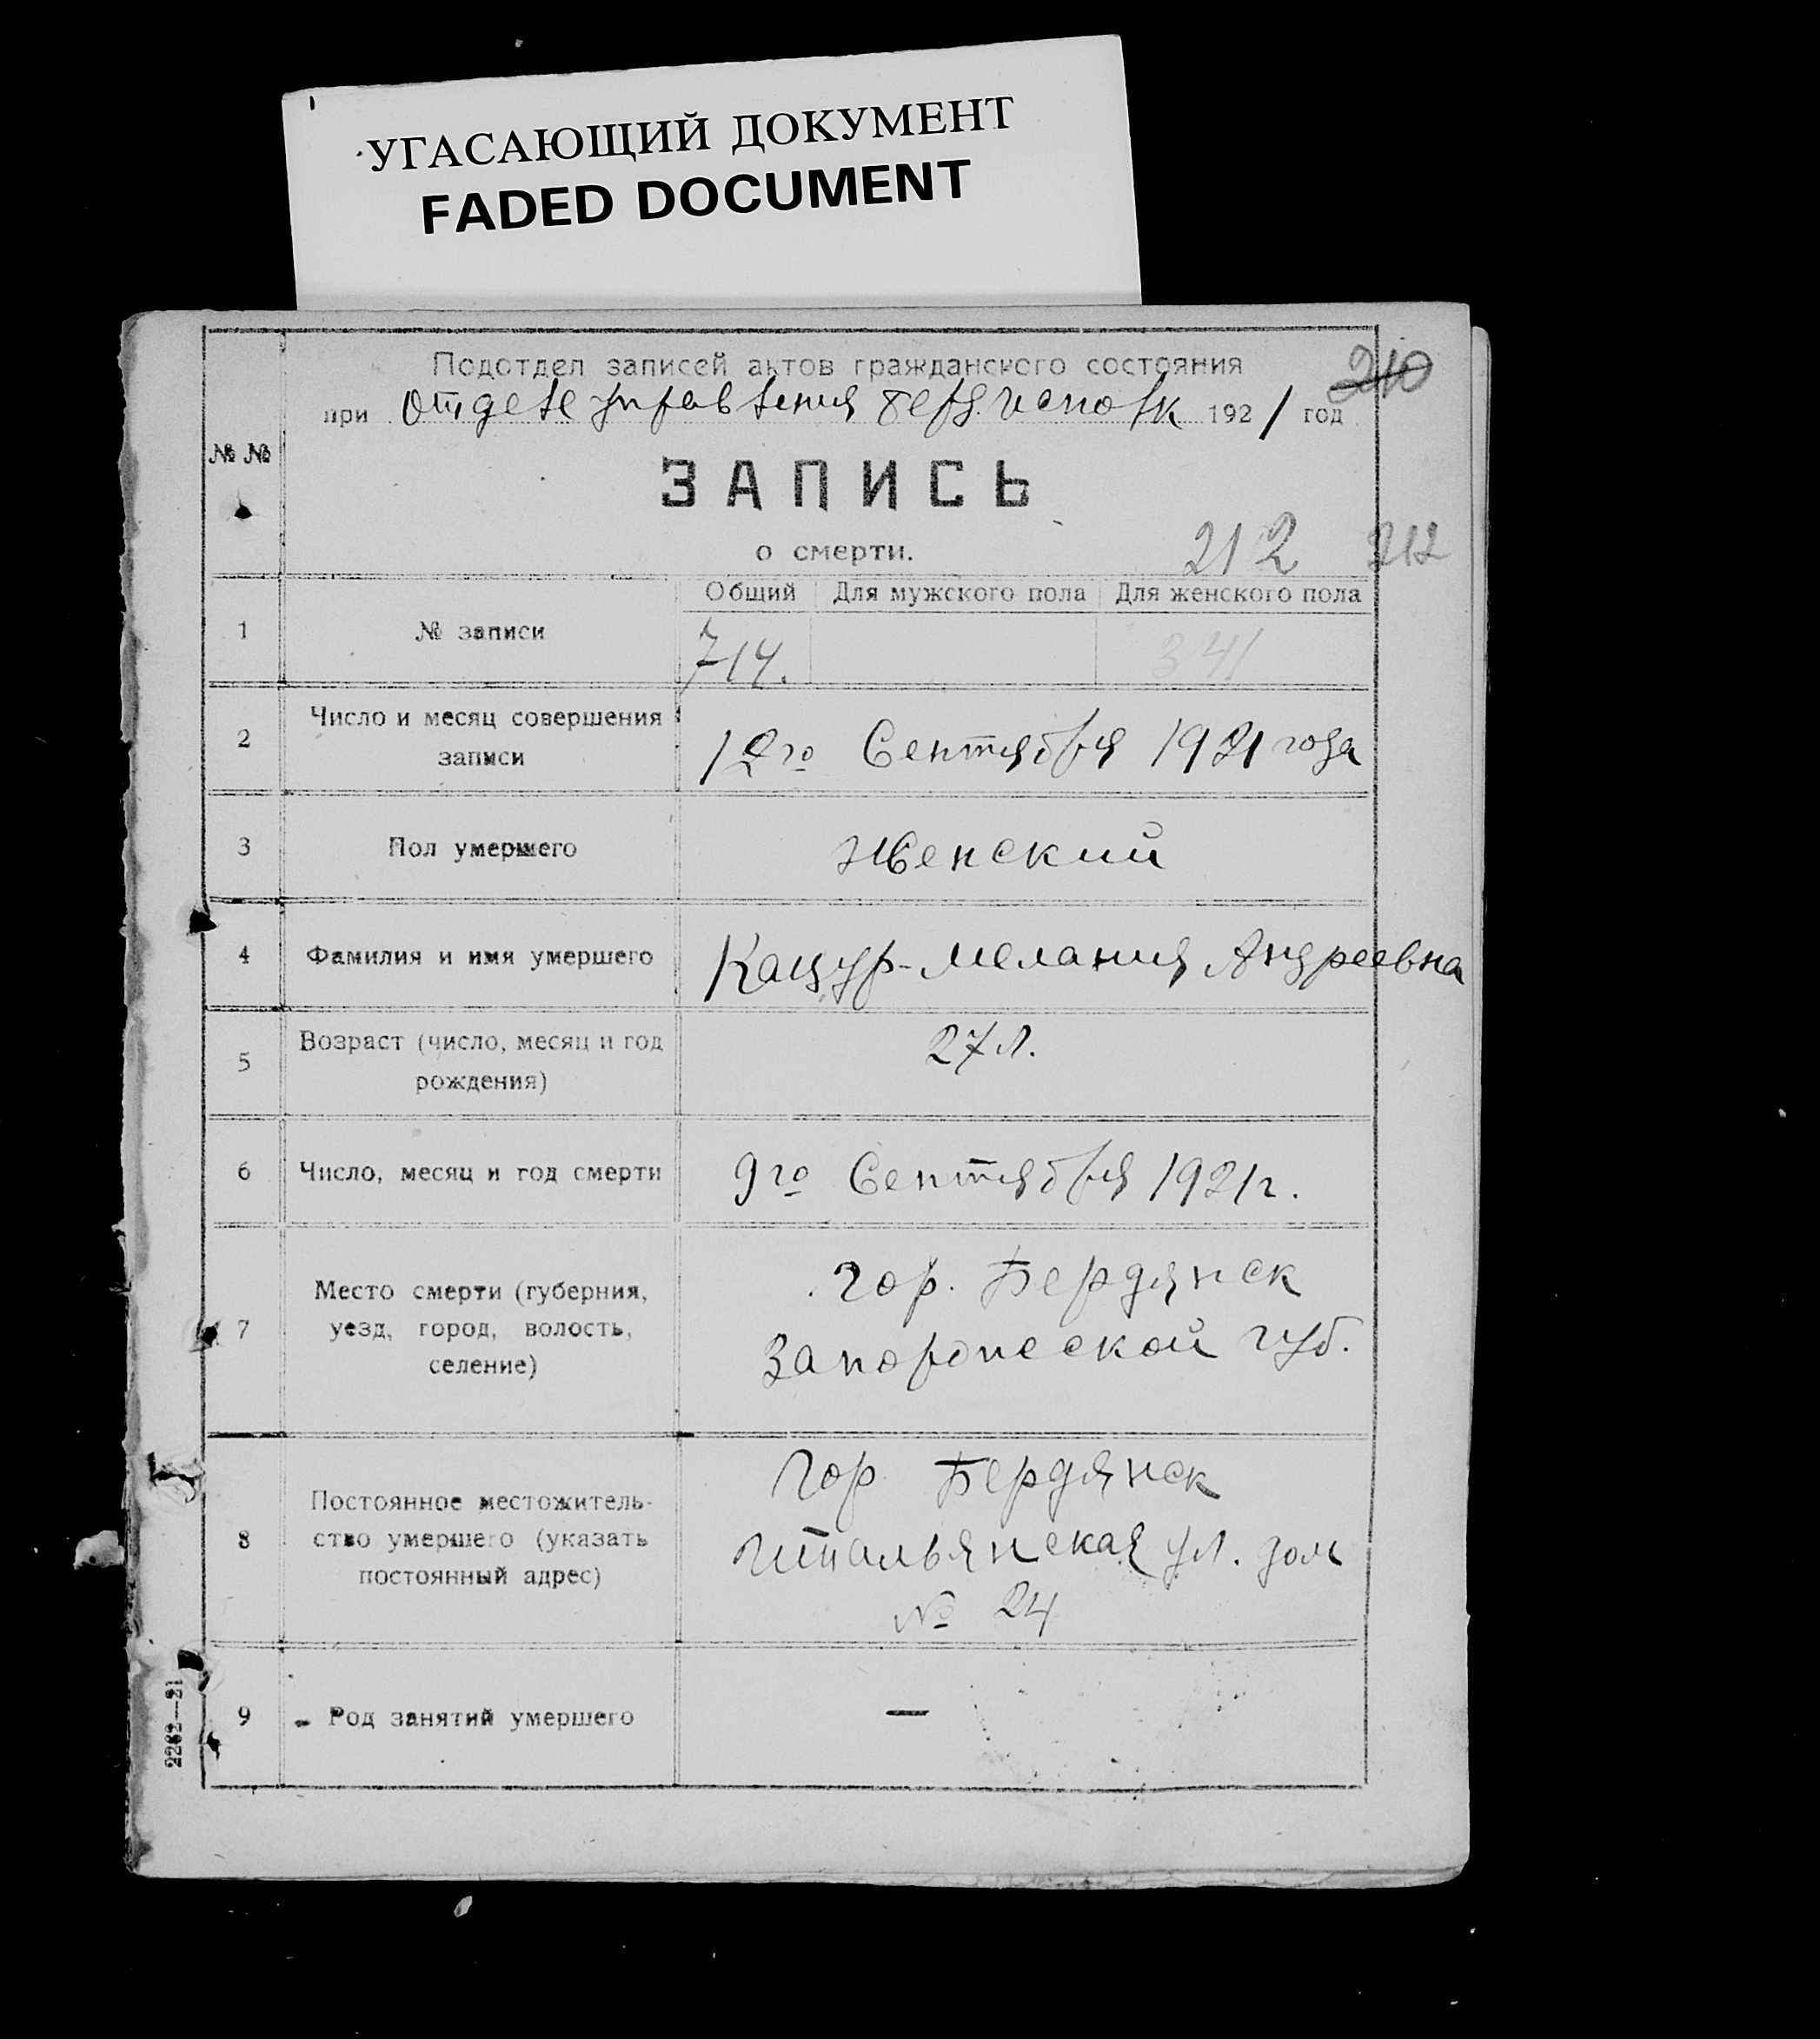 УГАСАЮЩИЙ ДОКУМЕНТ
FADED DOCUMENT
Подотдел записей актов гражданского состояния
210
при Отделе управления Берд. исполк 1921 год
№ №
ЗАПИСЬ
о смерти.
212 212
Общий Для мужского пола Для женского пола
1 № записи 714. 341
2 Число и месяц совершения
записи
12го Сентября 1921 года
3 Пол умершего Женский
4 Фамилия и имя умершего Кацур-Мелания Андреевна
5 Возраст (число, месяц и год
рождения)
27 л.
6 Число, месяц и год смерти 9го Сентября 1921 г.
7 Место смерти (губерния,
уезд, город, волость,
селение)
гор. Бердянск
Запорожской губ.
8 Постоянное местожитель-
ство умершего (указать
постоянный адрес)
Гор. Бердянск
Итальянская ул. дом
№ 24
9 Род занятий умершего —
2262—21